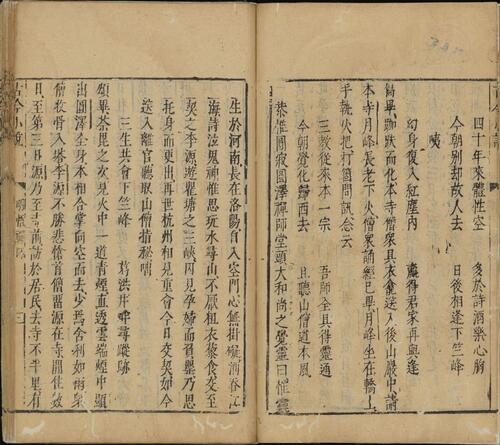 四十年來體性空　多於詩酒樂心胸
今朝別却故人去　日後相逢下竺峰
咦
幻身復入紅塵內　贏得君家再與逢
偈畢跏趺而化本寺僧衆具衣龕送入後山巖中請
本寺月峰長老下火僧衆誦經已畢月峰坐在轎上
手執火把打箇問訊念云
三教從來本一宗　吾師全具得靈通
今朝覺化歸西去　且聽山僧道本風
恭惟圓寂圓澤禪師堂頭大和尚之覺靈曰惟靈
生於河南長在洛陽自入空門心無掛礙酒吞江
海詩泣鬼神惟思玩水尋山不厭粗衣藜食交至
契之李源遊瞿塘之三峽因見孕婦而負罌乃思
托身而更出再世杭州相見重會今日交契如今
送入離宮聽取山僧指秘嘯
三生共會下竺峰　葛洪井畔尋蹤跡
頌畢荼毘之次見火中一道青煙直透雲端煙中顯
出圓澤全身本相合掌向空而去少焉舍利如雨衆
僧收骨入塔李源不勝悲愴首僧留源在寺閒住數
日至第三日源乃至寺前訪於居民去寺不半里有
古今小說